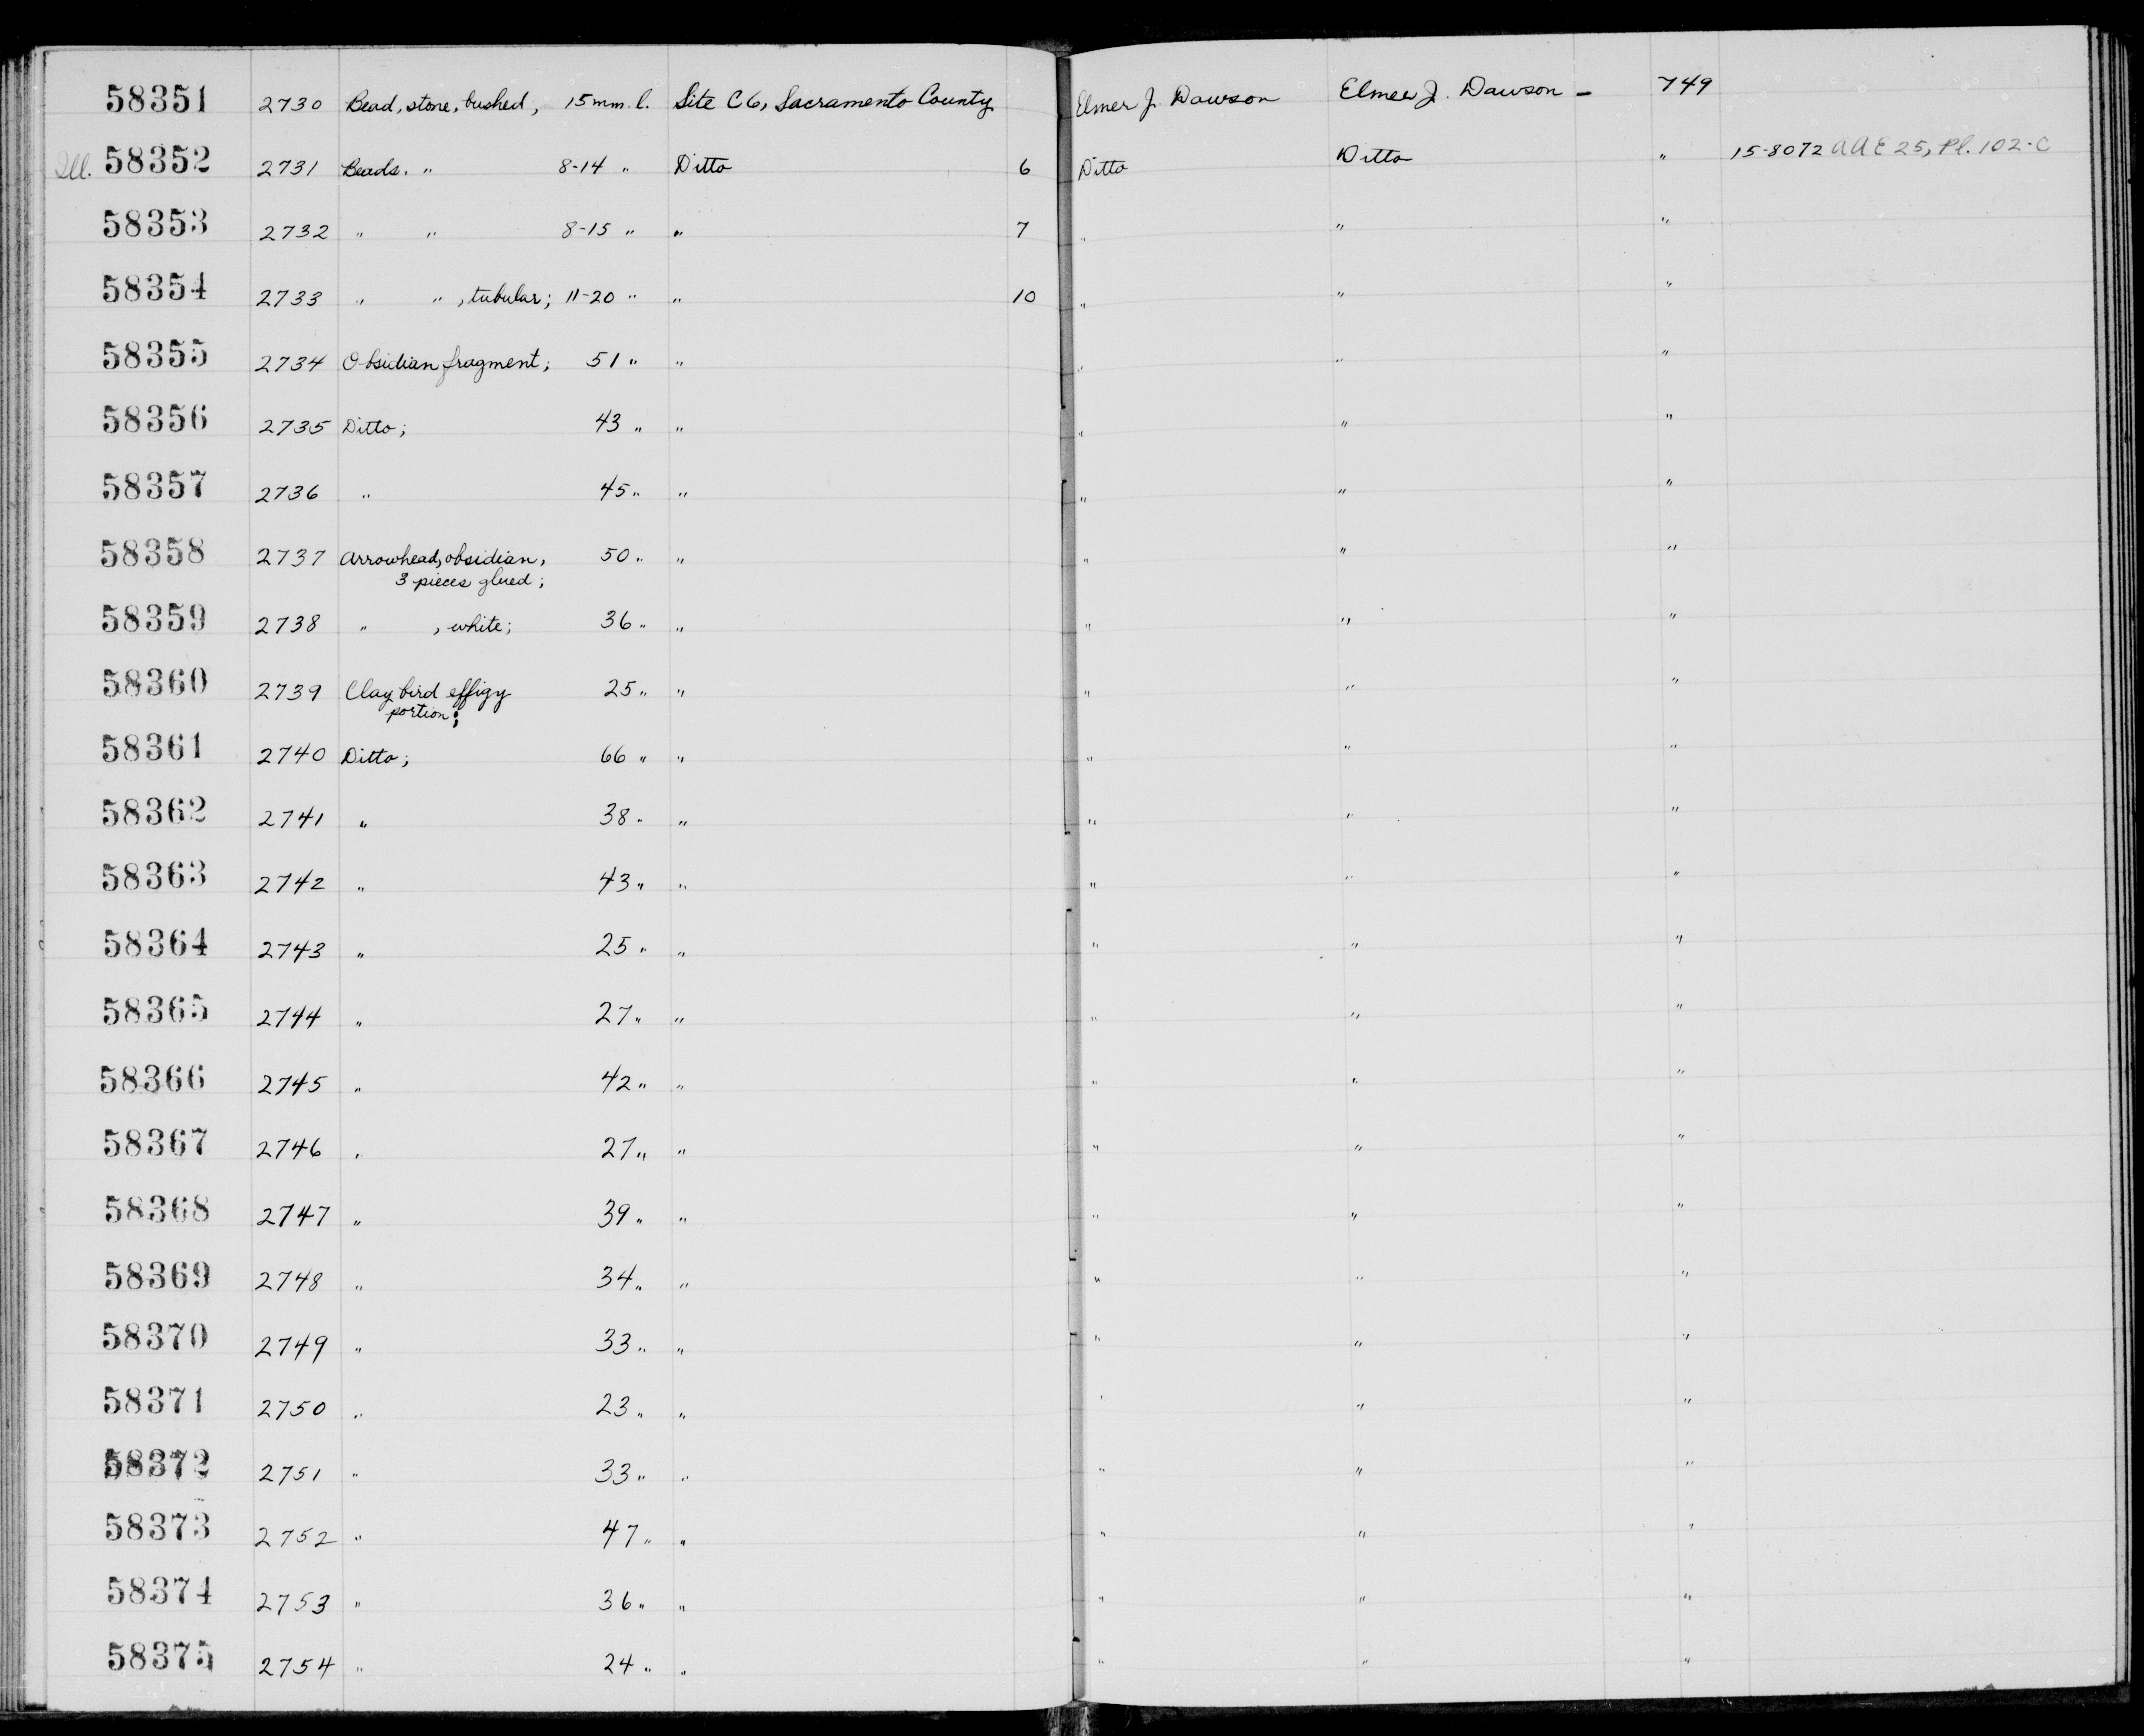 58351 2730 Bead, stone, bushed, 15 mm. l. Site C6, Sacramento County Elmer J. Dawson Elmer J. Dawson - 749
Ill. 58352 2731 Beads. " 8-14 " Ditto 6 Ditto Ditto " 15-8072 AAE 25, Pl. 102-C
58353 2732 " " 8-15 " " 7 " " "
58354 2733 " ", tubular; 11-20 " " 10 " " "
58355 2734 Obsidian fragment; 51 " " " " "
58356 2735 Ditto; 43 " " " " "
58357 2736 " 45 " " " " "
58358 2737 Arrowhead, obsidian, 50 " " " " "
3 pieces glued;
58359 2738 " , white; 36 " " " " "
58360 2739 Clay bird effigy 25 " " " " "
portion;
58361 2740 Ditto; 66 " " " " "
58362 2741 " 38 " " " " "
58363 2742 " 43 " " " " "
58364 2743 " 25 " " " " "
58365 2744 " 27 " " " " "
58366 2745 " 42 " " " " "
58367 2746 " 27 " " " " "
58368 2747 " 39 " " " " "
58369 2748 " 34 " " " " "
58370 2749 " 33 " " " " "
58371 2750 " 23 " " " " "
58372 2751 " 33 " " " " "
58373 2752 " 47 " " " " "
58374 2753 " 36 " " " " "
58375 2754 " 24 " " " " "